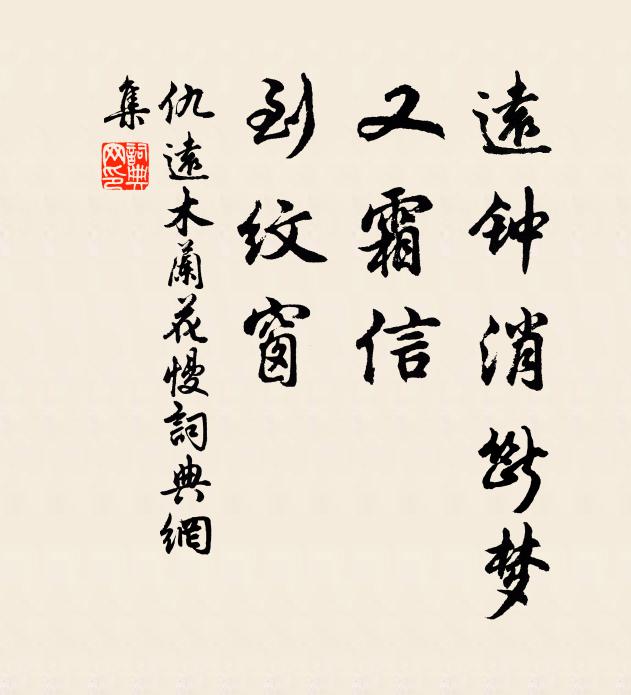 遠钟消斷梦
又霜信
到纹窗
仇遠木蘭花慢詞典網
集
詞典
网印